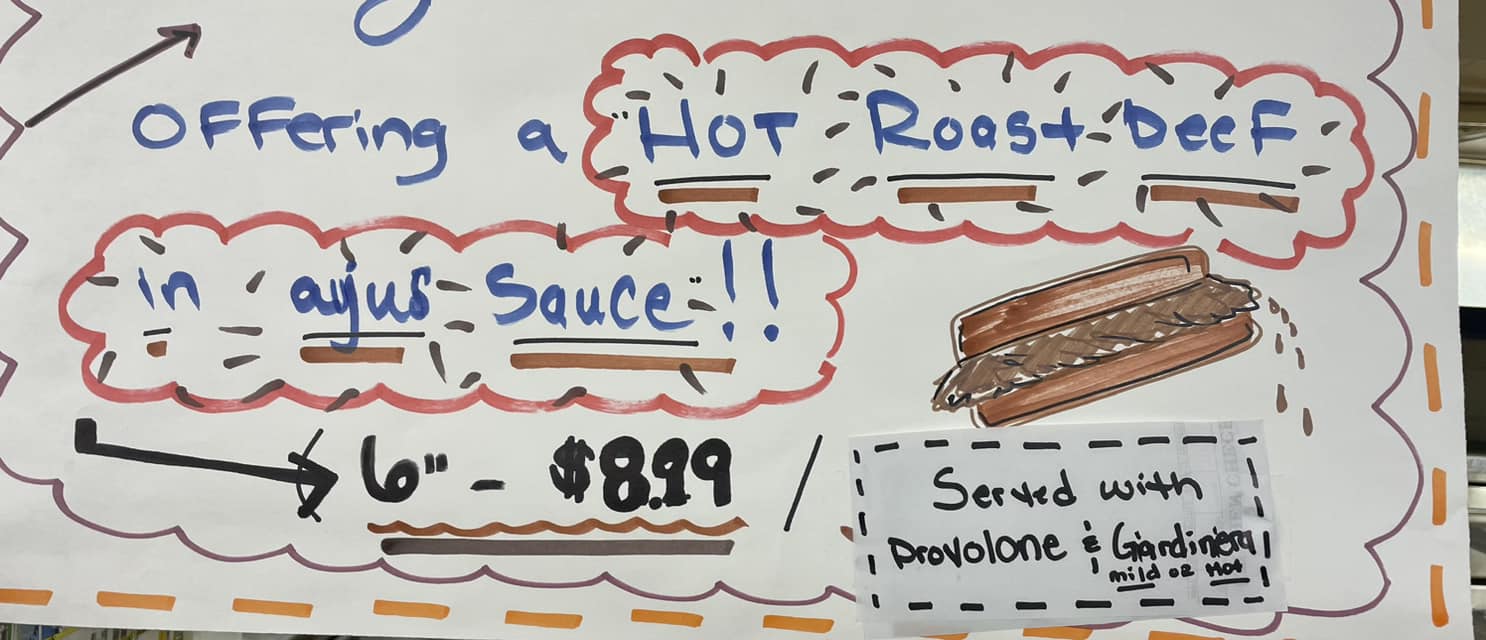 OFFering a "HOT Roast Beef
in aujus Sauce"!!
6" - $8.99 /
Served with
Provolone & Giardiniera
mild or Hot